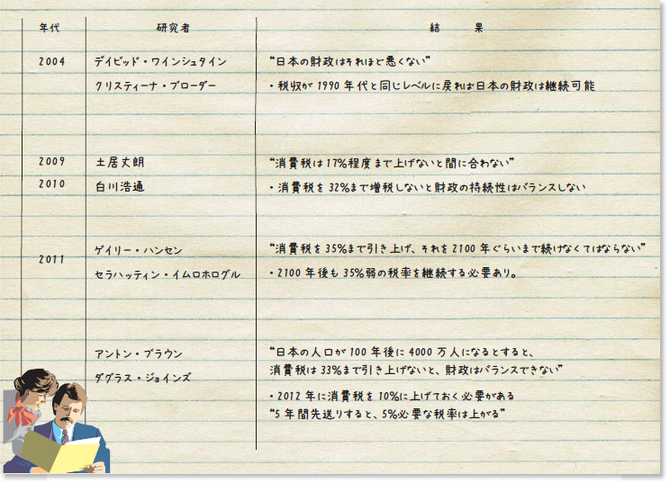 年代 研究者 結果
2004 デイビッド・ワインシュタイン “日本の財政はそれほど悪くない”
クリスティーナ・ブローダー ・税収が1990年代と同じレベルに戻れば日本の財政は継続可能
2009 土居丈朗 “消費税は17%程度まで上げないと間に合わない”
2010 白川浩通 ・消費税を32%まで増税しないと財政の持続性はバランスしない
ゲイリー・ハンセン “消費税を35%まで引き上げ、それを2100年ぐらいまで続けなくてはならない”
2011
セラハッティン・イムロホログル ・2100年後も35%弱の税率を継続する必要あり。
アントン・ブラウン “日本の人口が100年後に4000万人になるとすると、
ダグラス・ジョインズ 消費税は33%まで引き上げないと、財政はバランスできない”
・2012年に消費税を10%に上げておく必要がある
“5年間先送りすると、5%必要な税率は上がる”